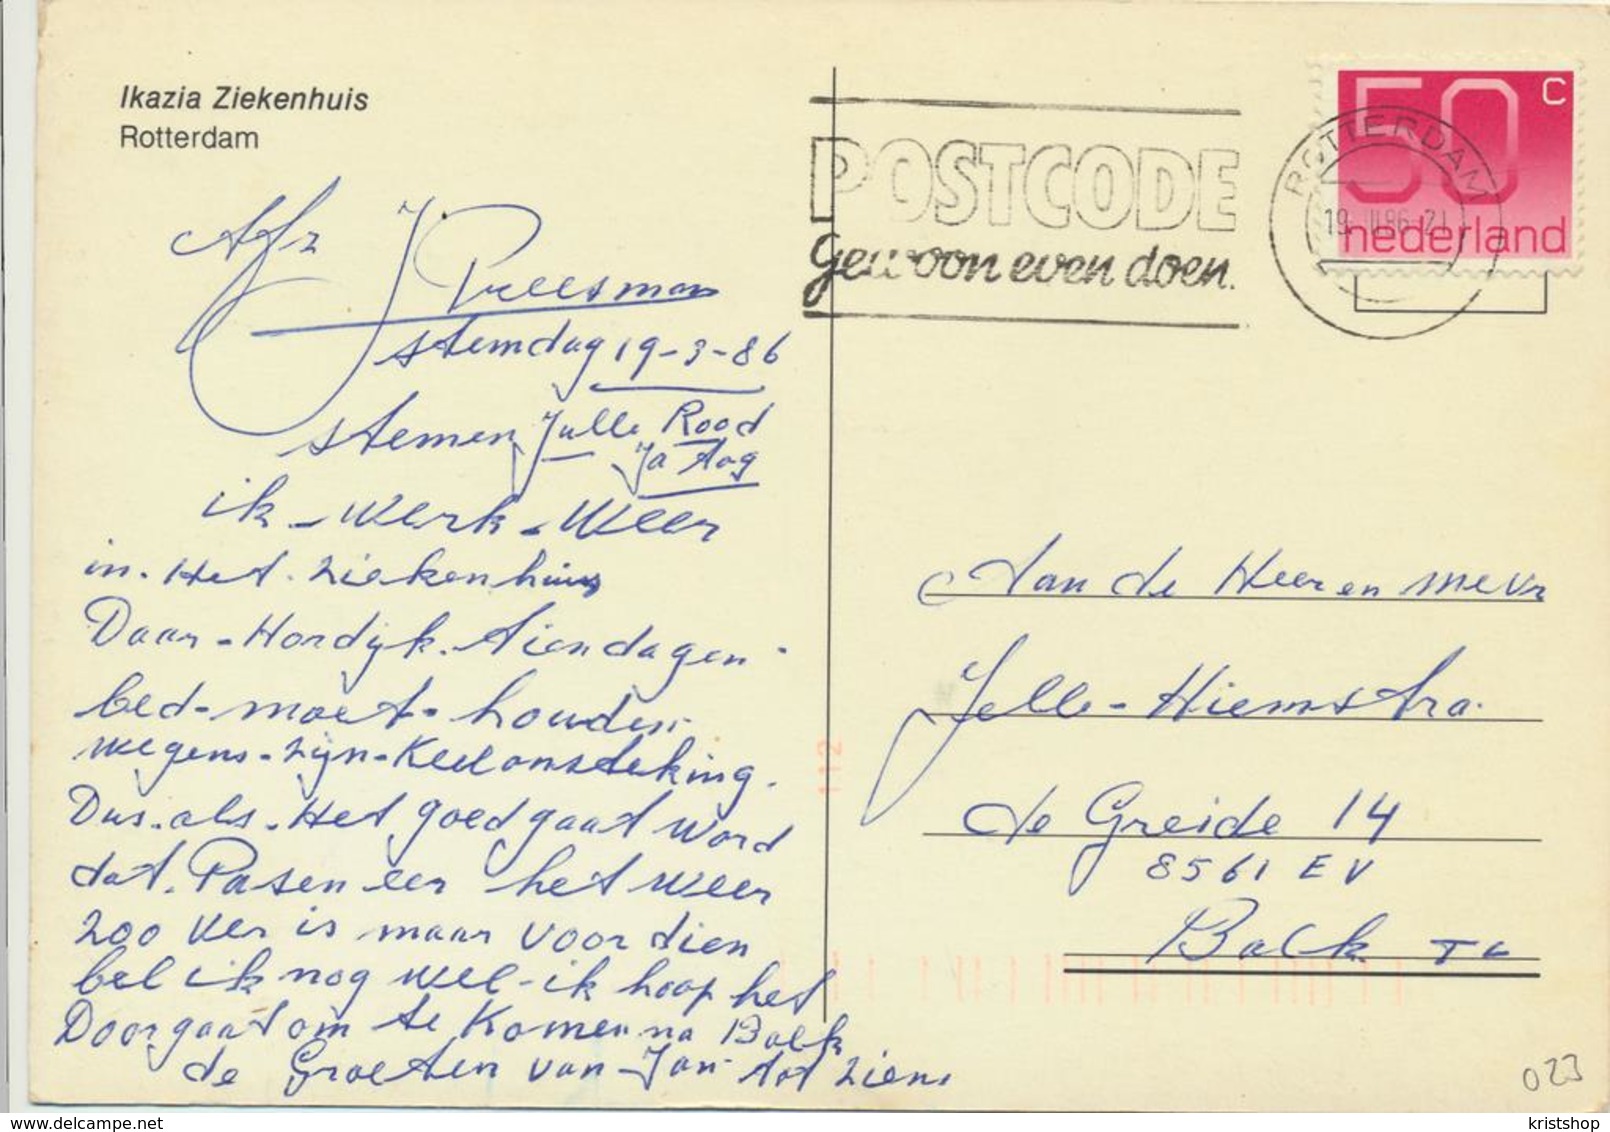 Ikazia Ziekenhuis
Rotterdam
Afz J Vreesman
stemdag 19-3-86
stemen Jullie Rood
Ja Aog
ik - werk - weer
in. Het. ziekenhuis
Daar - Hordijk. tiendagen -
bed - moet - houden
wegens - zijn - Keelonsteking.
Dus. als. Het goed gaat word
dat. Pasen eer het weer
zoo ver is maar voor dien
bel ik nog wel - ik hoop het
Doorgaat om te Komen na Balk
de Groeten van - Jan tot ziens
POSTCODE
gewoon even doen.
50 c
nederland
ROTTERDAM
19. III 86-21
Aan de Heer en mevr
Jelle - Hiemstra.
de Greide 14
8561 EV
Balk
112
023
delcampe.net
kristshop